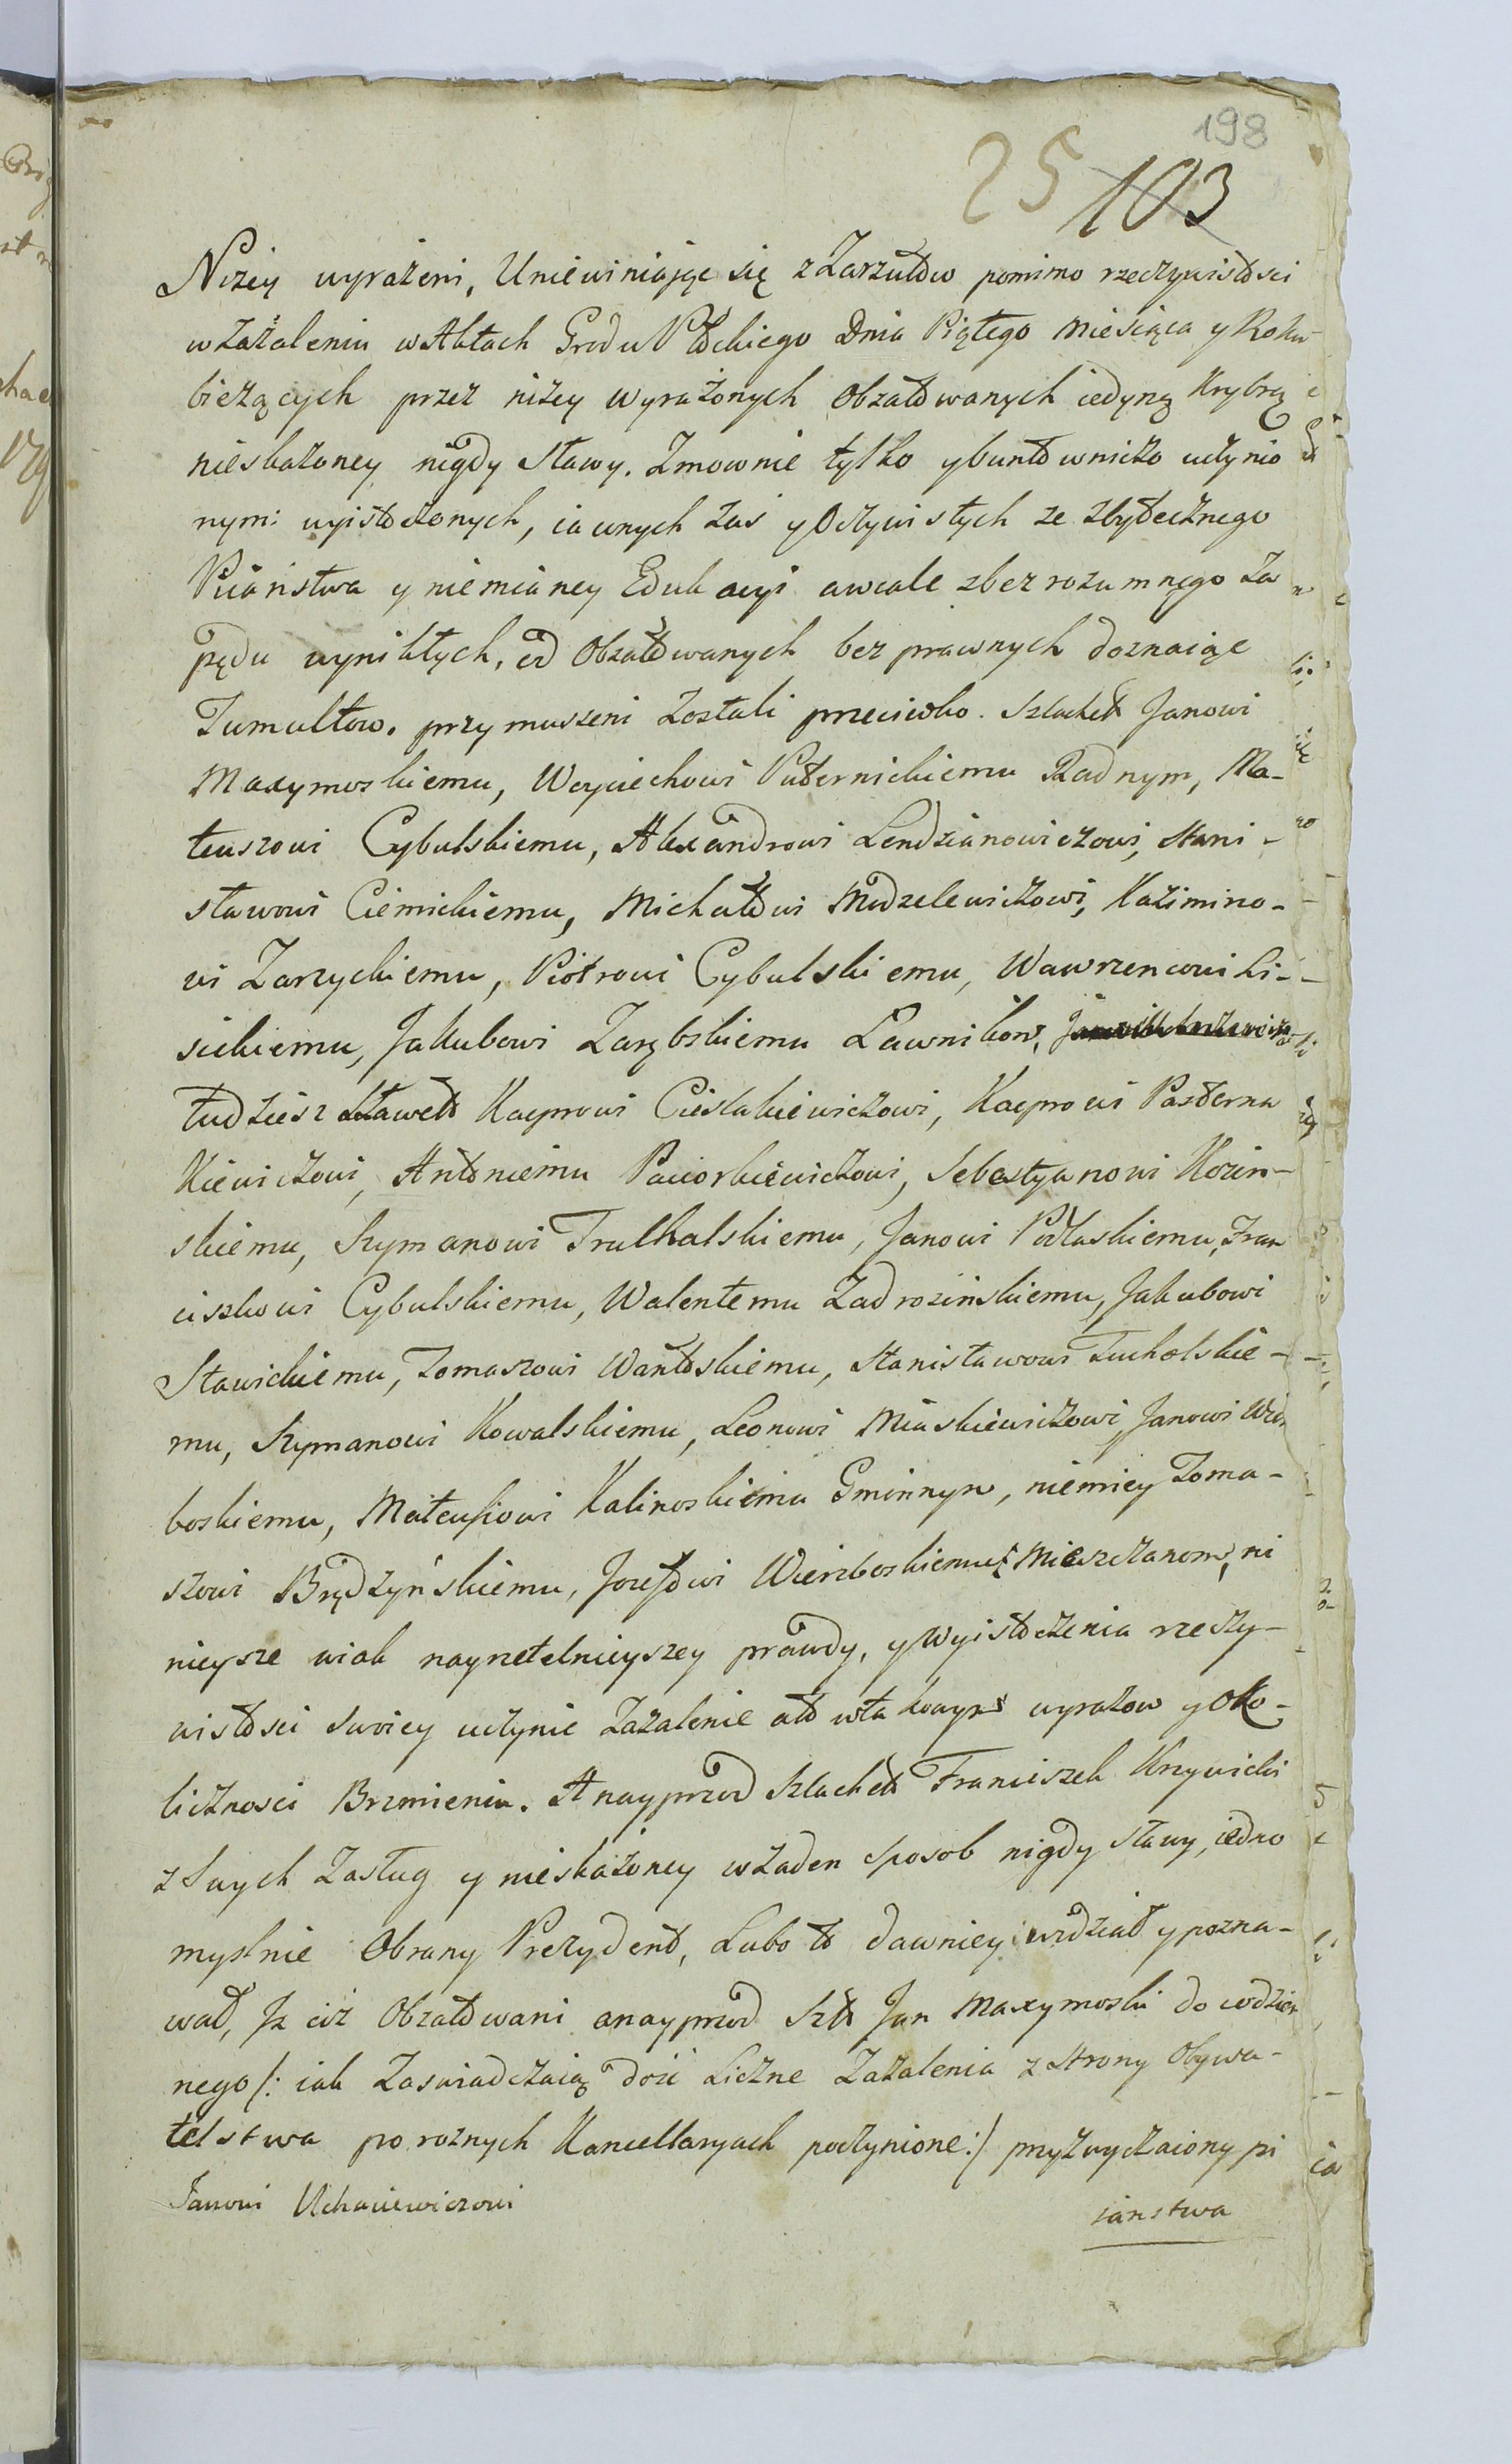 198
25 103
Niżey wyrażeni, Uniewiniając się z Zarzutow pomimo rzeczywistosci
w zażaleniu w Aktach Grodu Płockiego Dnia Piątego Miesiąca y Roku
bieżących przez niżey wyrażonych Obżałowanych iedyną Krybrą
nieskażoney nigdy Sławy. Zmownie tylko y buntowniczo uczynio
nym: uyistoczonych, iawnych zaś y Oczywistych ze zbytecznego
Piiaństwa y niemianey Edukacyi a wcale z bezrozumnego Za
pędu wynikłych, od Obżałowanych bezprawnych doznaiąc
Tumultow. przymuszeni zostali przeciwko. Szlachet Janowi
Maxymoskiemu, Woyciechowi Puternickiemu Radnym, Ma-
teuszowi Cybulskiemu, Alexandrowi Lendzianowiczowi, Stani-
sławowi Ciemickiemu, Michałowi Modzelewiczowi, Kazimiro-
wi Zarzyckiemu, Piotrowi Cybulskiemu, Wawrzencowi Li-
sickiemu, Jakubowi Zarębskiemu Ławnikow,
tudziesz Sławet Kacprowi Cieslakiewiczowi, Kacprowi Pasterna
kiewiczowi, Antoniemu Paciorkiewiczowi, Sebastyanowi Kozin-
skiemu, Szymanowi Trulkalskiemu, Janowi Podlaskiemu, Fran
ciszkowi Cybulskiemu, Walentemu Zadrozińskiemu, Jakubowi
Stawickiemu, Tomaszowi Wantoskiemu, Stanisławowi Tucholskie-
mu, Szymanowi Kowalskiemu, Leonowi Miaskiewiczowi, Janowi
boskiemu, Mateuszowi Kalinoskiemu Gminnym, niemiey Toma-
szowi Brędzyńskiemu, Jozefowi Wierzboskiemu Mieszczanom, ni
nieysze wiak nayrzetelnieyszey prawdy, y wyistoczenia rzeczy-
wistosci swoiey uczynic Zażalenie ato wta kowych wyrazow y oko-
licznosci Brzmieniu. A nayprzod Szlachet Franciszek Krzywicki
z Swych Zasług y nieskażoney wżaden sposob nigdy sławy, iedno
myslnie Obrany Prezydent, Lubo to dawniey widział y pozna-
wał, Jż ciż Obżałowani a nayprzod Szlt Jan Maxymoski do codzien
nego /: iak Zaswiadczaią dość Liczne Zażalenia z Strony Obywa-
telstwa po roznych Kancellaryach poczynione :/ przyzwyczaiony pi
Janowi Uchaciewiczowi
iaństwa